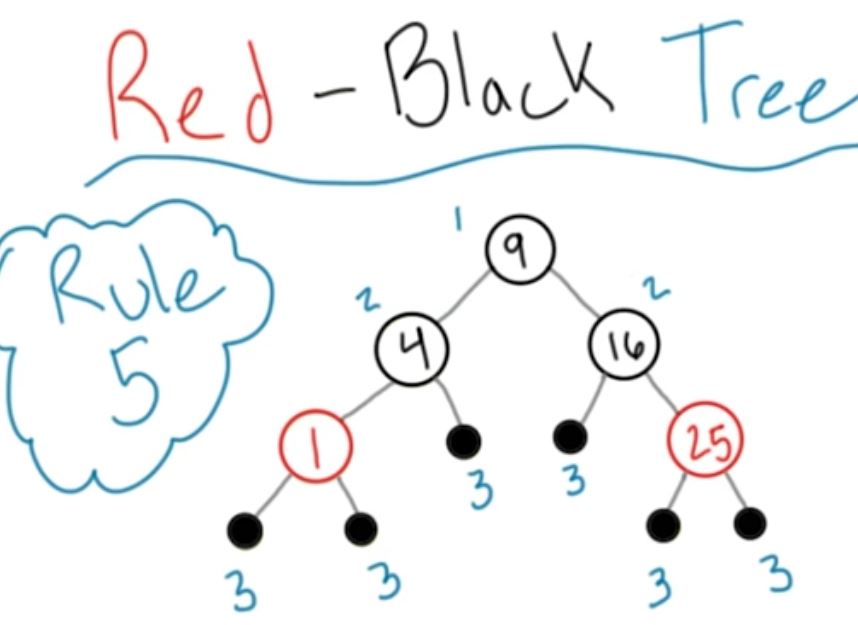 Red-Black Tree
Rule
5
1
9
2
2
4
16
1
25
3
3
3
3
3
3